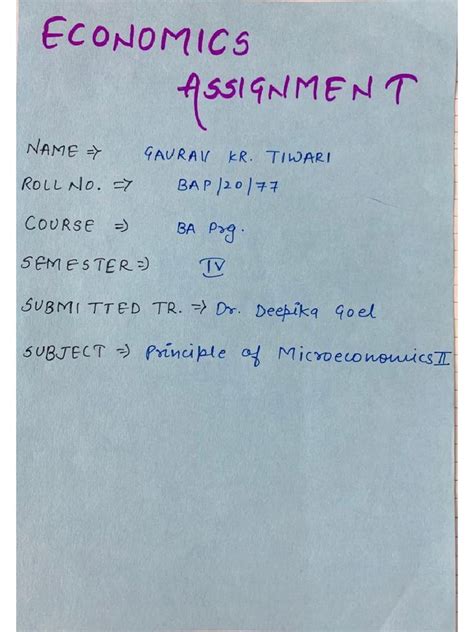 ECONOMICS
ASSIGNMENT
NAME ⇒ GAURAV KR. TIWARI
ROLL NO. ⇒ BAP/20/77
COURSE ⇒ BA Prg.
SEMESTER ⇒ IV
SUBMITTED TR. ⇒ Dr. Deepika Goel
SUBJECT ⇒ Principle of Microeconomics II